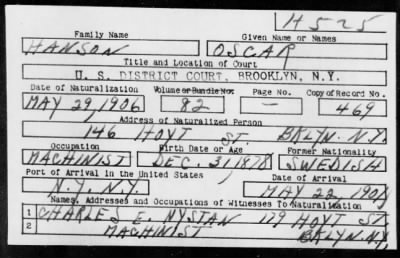 H525
Family Name Given Name or Names
HANSON OSCAR
Title and Location of Court
U. S. DISTRICT COURT, BROOKLYN, N.Y.
Date of Naturalization Volume or Bundle No. Page No. Copy of Record No.
MAY 29, 1906 82 — 469
Address of Naturalized Person
146 HOYT ST. BKLYN. N.Y.
Occupation Birth Date or Age Former Nationality
MACHINIST DEC. 31, 1878 SWEDISH
Port of Arrival in the United States Date of Arrival
N.Y. N.Y. MAY 22
Names, Addresses and Occupations of Witnesses To Naturalization
1 CHARLES E. NYSTAN 179 HOYT ST.
2 MACHINIST BKLYN. N.Y.